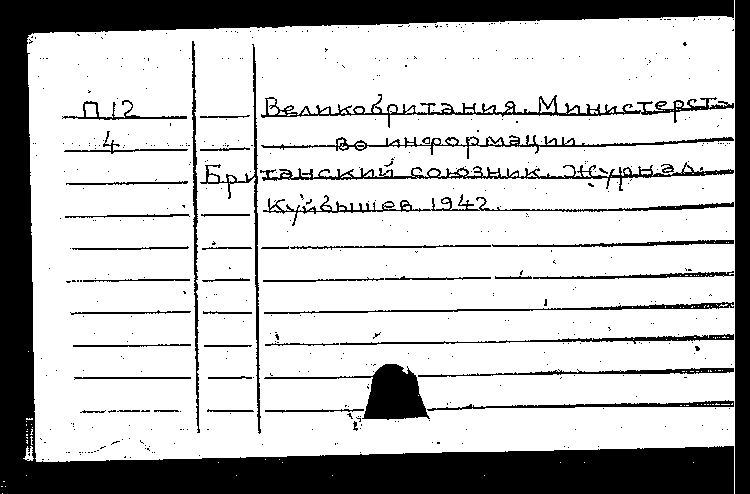 П 12 Великобритания. Министерст-
4 во информации.
Британский союзник. Журнал.
Куйбышев. 1942.